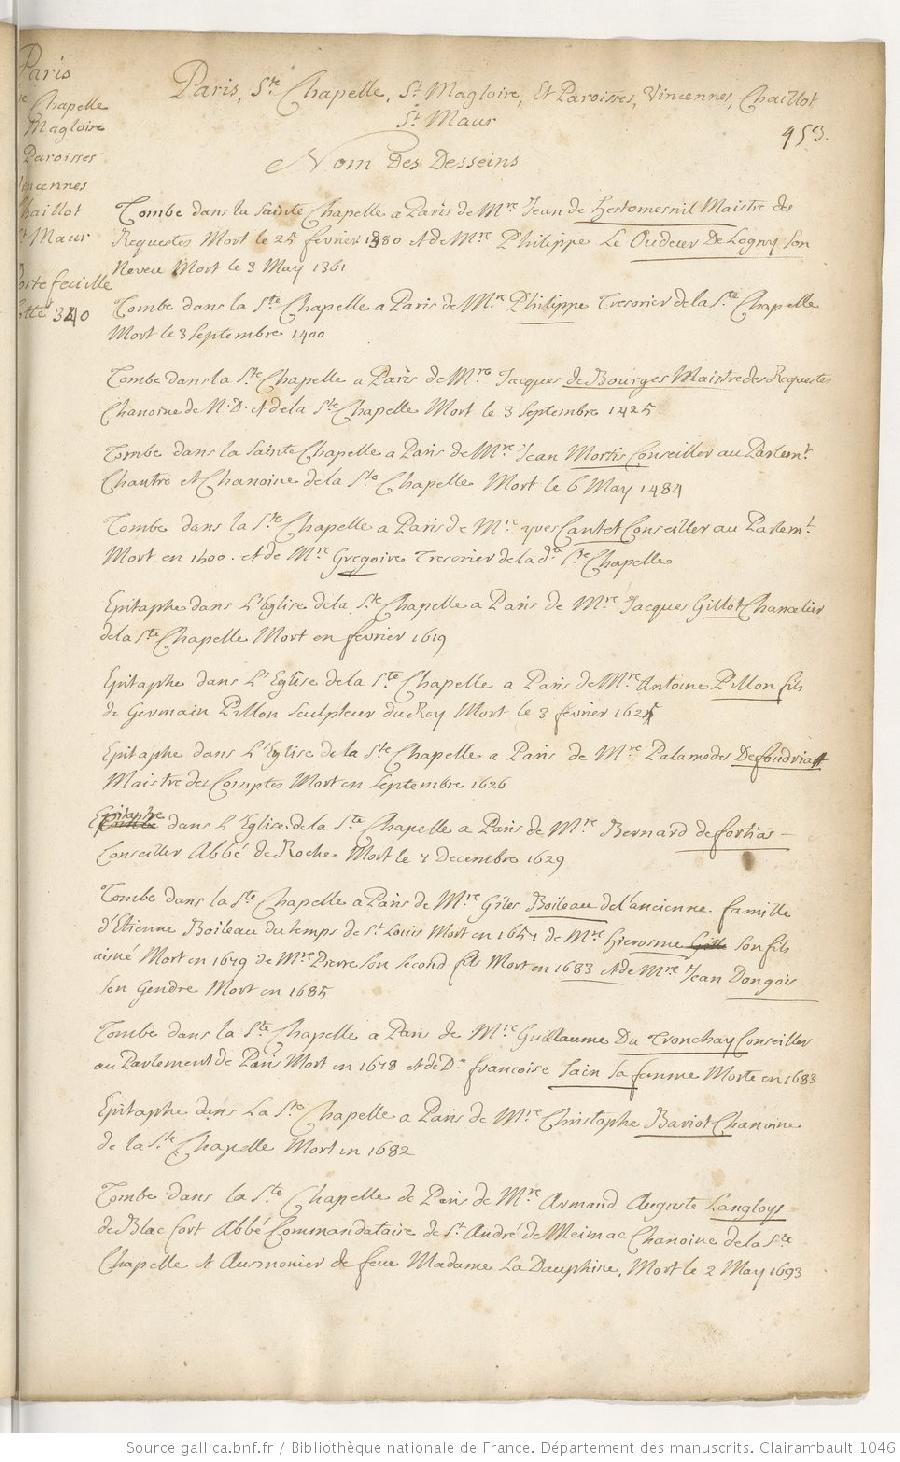 Paris
Chapelle
Magloire
Paroisses
Vincennes
Chaillot
St Maur
Portefeuille
Cotté 340
Paris, Ste Chapelle, St Magloire, Et Paroisses, Vincennes, Chaillot
St Maur
953.
Nom Des Desseins
Tombe dans la Sainte Chapelle a Paris de Mre Jean de Hestomesnil Maistre des
Requestes Mort le 25 fevrier 1380 et de Mre Philippe Le Oudeur De Logny Son
Neveu Mort le 3 May 1361
Tombe dans la Ste Chapelle a Paris de Mre Philippe Tresorier de la Ste Chapelle
Mort le 3 Septembre 1400
Tombe dans la Ste Chapelle a Paris de Mre Jacques de Bourges Maistre des Requestes
Chanoine de N.D. et de la Ste Chapelle Mort le 3 Septembre 1425
Tombe dans la Sainte Chapelle a Paris de Mre Jean Mortis Conseiller au Parlemt
Chantre et Chanoine de la Ste Chapelle Mort le 6 May 1484
Tombe dans la Ste Chapelle a Paris de Mre yves Cantet Conseiller au Parlemt
Mort en 1400. et de Mre Gregoire Tresorier de la de Ste Chapelle
Epitaphe dans L'Eglise de la Ste Chapelle a Paris de Mre Jacques Gillot Chancelier
de la Ste Chapelle Mort en fevrier 1619
Epitaphe dans L'Eglise de la Ste Chapelle a Paris de Mre Antoine Pillon fils
de Germain Pillon Sculpteur du Roy Mort le 3 fevrier 1625
Epitaphe dans L'Eglise de la Ste Chapelle a Paris de Mre Palamedes De foudriat
Maistre des Comptes Mort en Septembre 1626
Epitaphe dans L'Eglise de la Ste Chapelle a Paris de Mre Bernard de fortias
Conseiller Abbé de Roche. Mort le 8 Decembre 1629
Tombe dans la Ste Chapelle a Paris de Mre Giles Boileau de l'ancienne famille
d'Etienne Boileau du temps de St Louis Mort en 1657 de Mre Hierosme Son fils
ainé Mort en 1679 de Mre Pierre Son Second fils Mort en 1683 et de Mre Jean Dongois
Son Gendre Mort en 1685
Tombe dans la Ste Chapelle a Paris de Mre Guillaume Du Tronchay Conseiller
au Parlement de Paris Mort en 1678 et de De francoise Sain Sa femme Morte en 1683
Epitaphe dans La Ste Chapelle a Paris de Mre Christophe Bariot Chanoine
de la Ste Chapelle Mort en 1682
Tombe dans la Ste Chapelle de Paris de Mre Armand Auguste Langloys
de Blacfort Abbé Commandataire de St André de Meimac Chanoine de la Ste
Chapelle et Aumonier de feue Madame La Dauphine, Mort le 2 May 1693
Source gallica.bnf.fr / Bibliothèque nationale de France. Département des manuscrits. Clairambault 1046